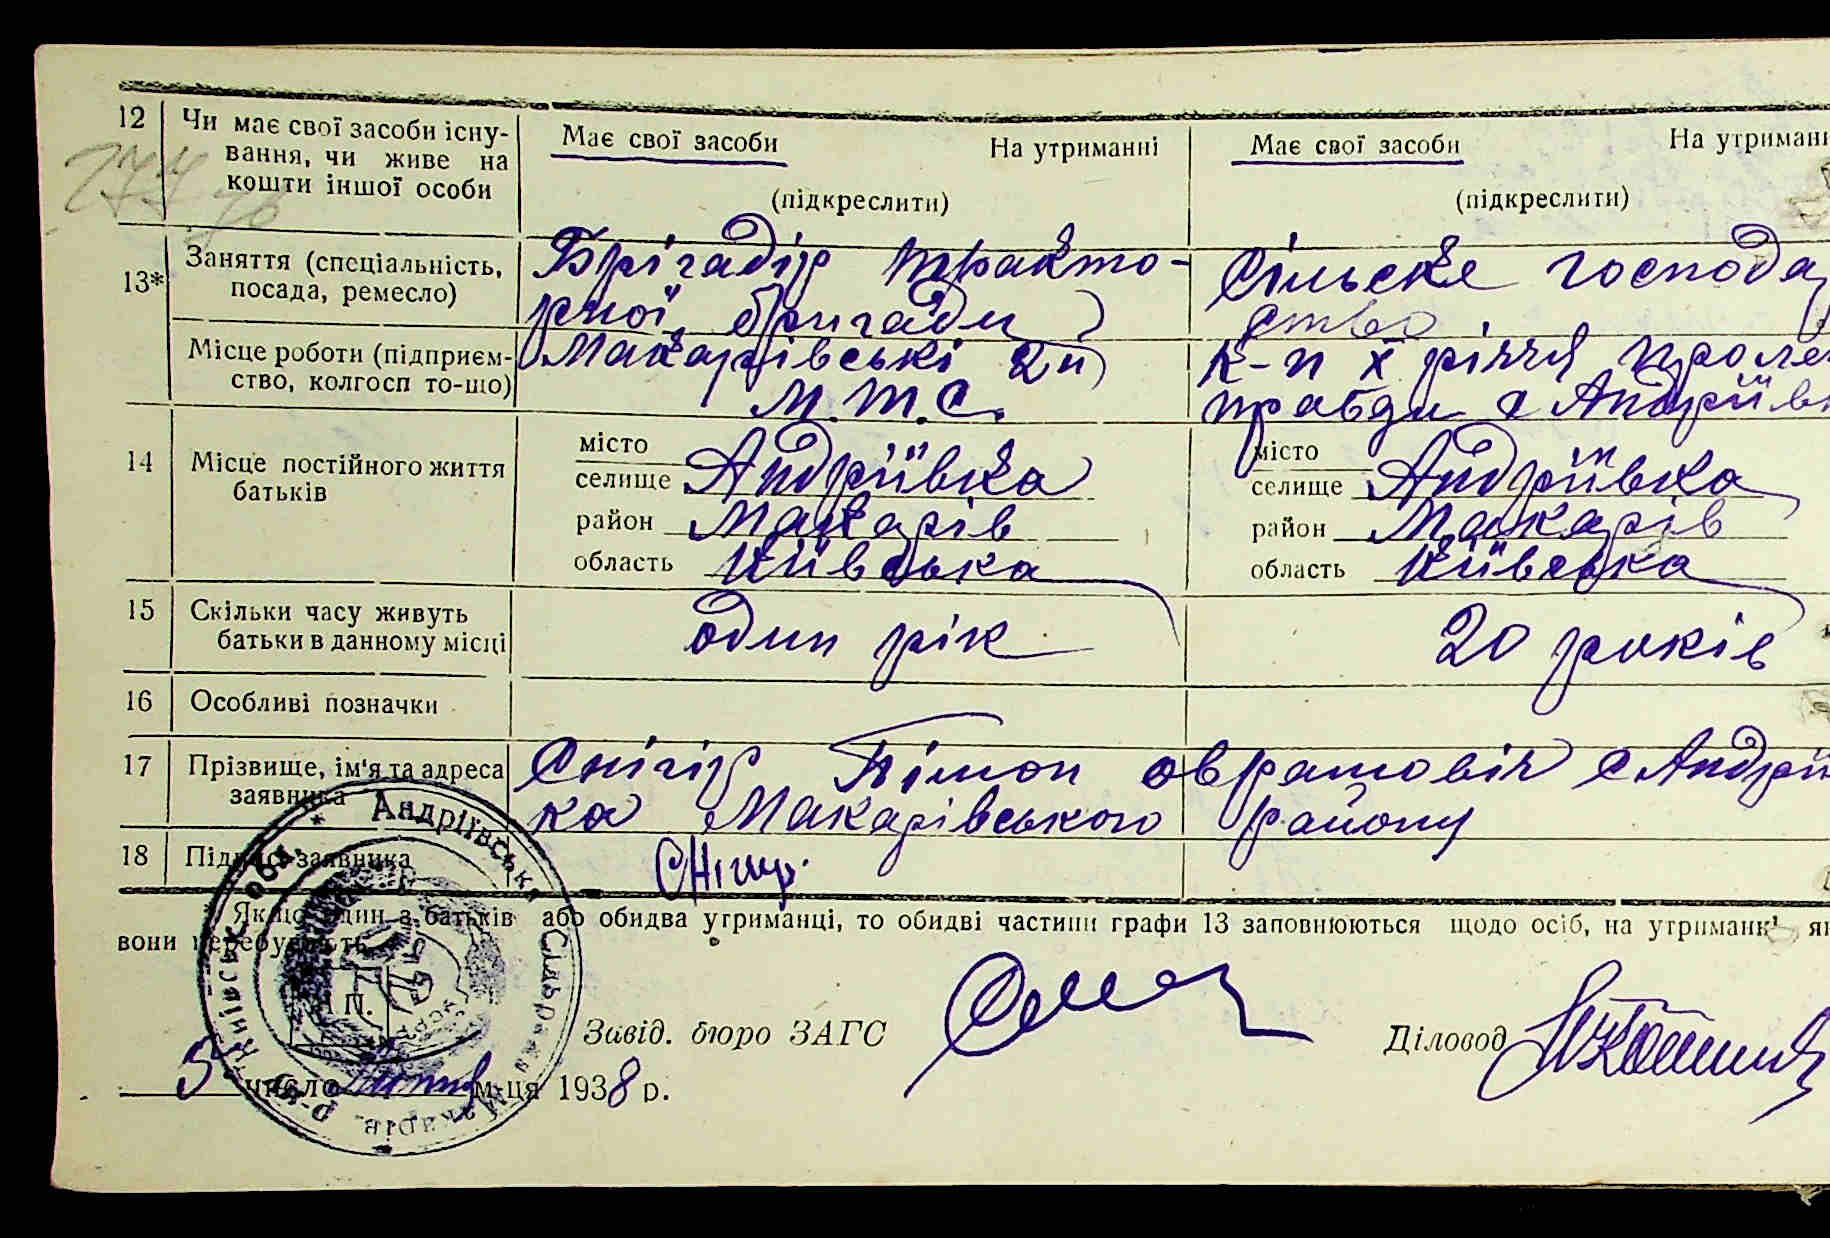 12 Чи має свої засоби існу-
вання, чи живе на
кошти іншої особи
Має свої засоби На утриманні
(підкреслити)
Має свої засоби На утриманн
(підкреслити)
13* Заняття (спеціальність,
посада, ремесло)
Брігадір тракто-
рної бригади
Сільске господар
ство
Місце роботи (підприєм-
ство, колгосп то-що)
Макарівські 2й
М.Т.С.
к-п Х річчя проле
правди с Андріївк
14 Місце постійного життя
батьків
місто
селище Андріївка
район Макарів
область Київська
місто
селище Андріївка
район Макарів
область Київська
15 Скільки часу живуть
батьки в данному місці
один рік
20 років
16 Особливі позначки
17 Прізвище, ім'я та адреса
заявника
Снігір Тімон овратовіч с Андрії
ка Макарівського району
18 Підпис заявника
Снігир
Якщо один з батьків або обидва утриманці, то обидві частини графи 13 заповнюються щодо осіб, на утриманні як
вони перебувають.
Андріївська Сільрада Макарів. р-ну Київськ. обл.
М. П.
Завід. бюро ЗАГС
Діловод
5 число м-ця 1938 р.